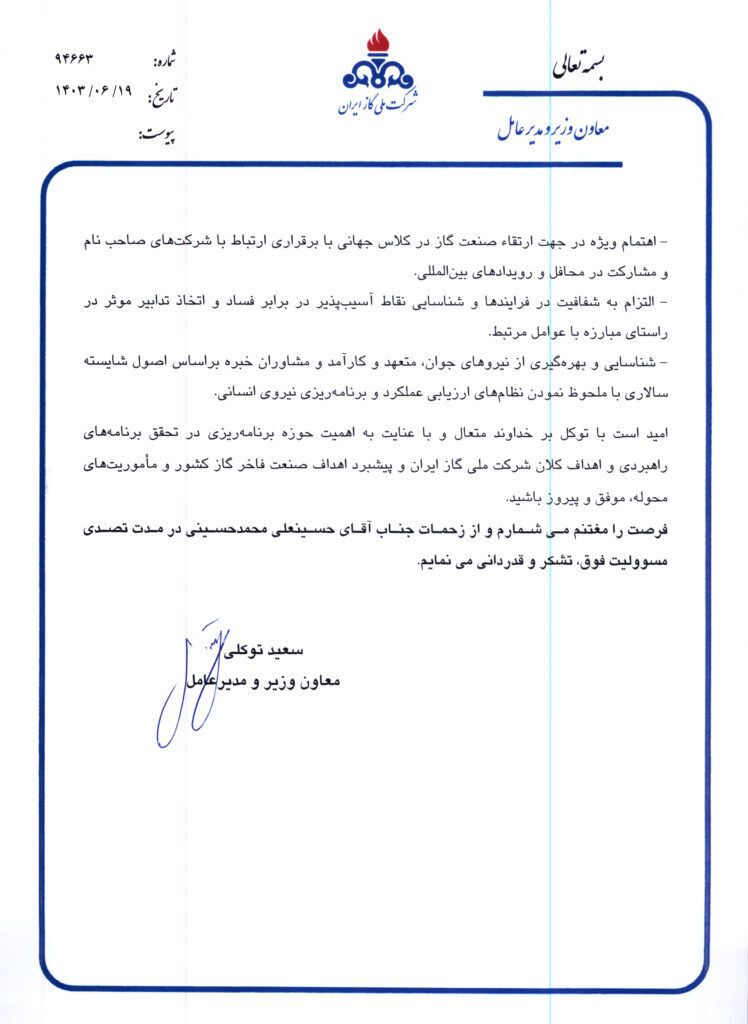 بسمه تعالی
معاون وزیر و مدیرعامل
شرکت ملی گاز ایران
شماره: ۹۴۶۶۳
تاریخ: ۱۴۰۳/۰۶/۱۹
پیوست:
– اهتمام ویژه در جهت ارتقاء صنعت گاز در کلاس جهانی با برقراری ارتباط با شرکت‌های صاحب نام
و مشارکت در محافل و رویدادهای بین‌المللی.
– التزام به شفافیت در فرایندها و شناسایی نقاط آسیب‌پذیر در برابر فساد و اتخاذ تدابیر موثر در
راستای مبارزه با عوامل مرتبط.
– شناسایی و بهره‌گیری از نیروهای جوان، متعهد و کارآمد و مشاوران خبره براساس اصول شایسته
سالاری با ملحوظ نمودن نظام‌های ارزیابی عملکرد و برنامه‌ریزی نیروی انسانی.
امید است با توکل بر خداوند متعال و با عنایت به اهمیت حوزه برنامه‌ریزی در تحقق برنامه‌های
راهبردی و اهداف کلان شرکت ملی گاز ایران و پیشبرد اهداف صنعت فاخر گاز کشور و مأموریت‌های
محوله، موفق و پیروز باشید.
فرصت را مغتنم می شمارم و از زحمات جناب آقای حسینعلی محمدحسینی در مدت تصدی
مسوولیت فوق، تشکر و قدردانی می نمایم.
سعید توکلی
معاون وزیر و مدیرعامل